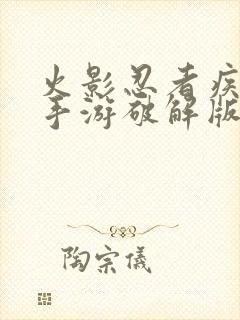 火影忍者疾
手游破解版
陶宗儀